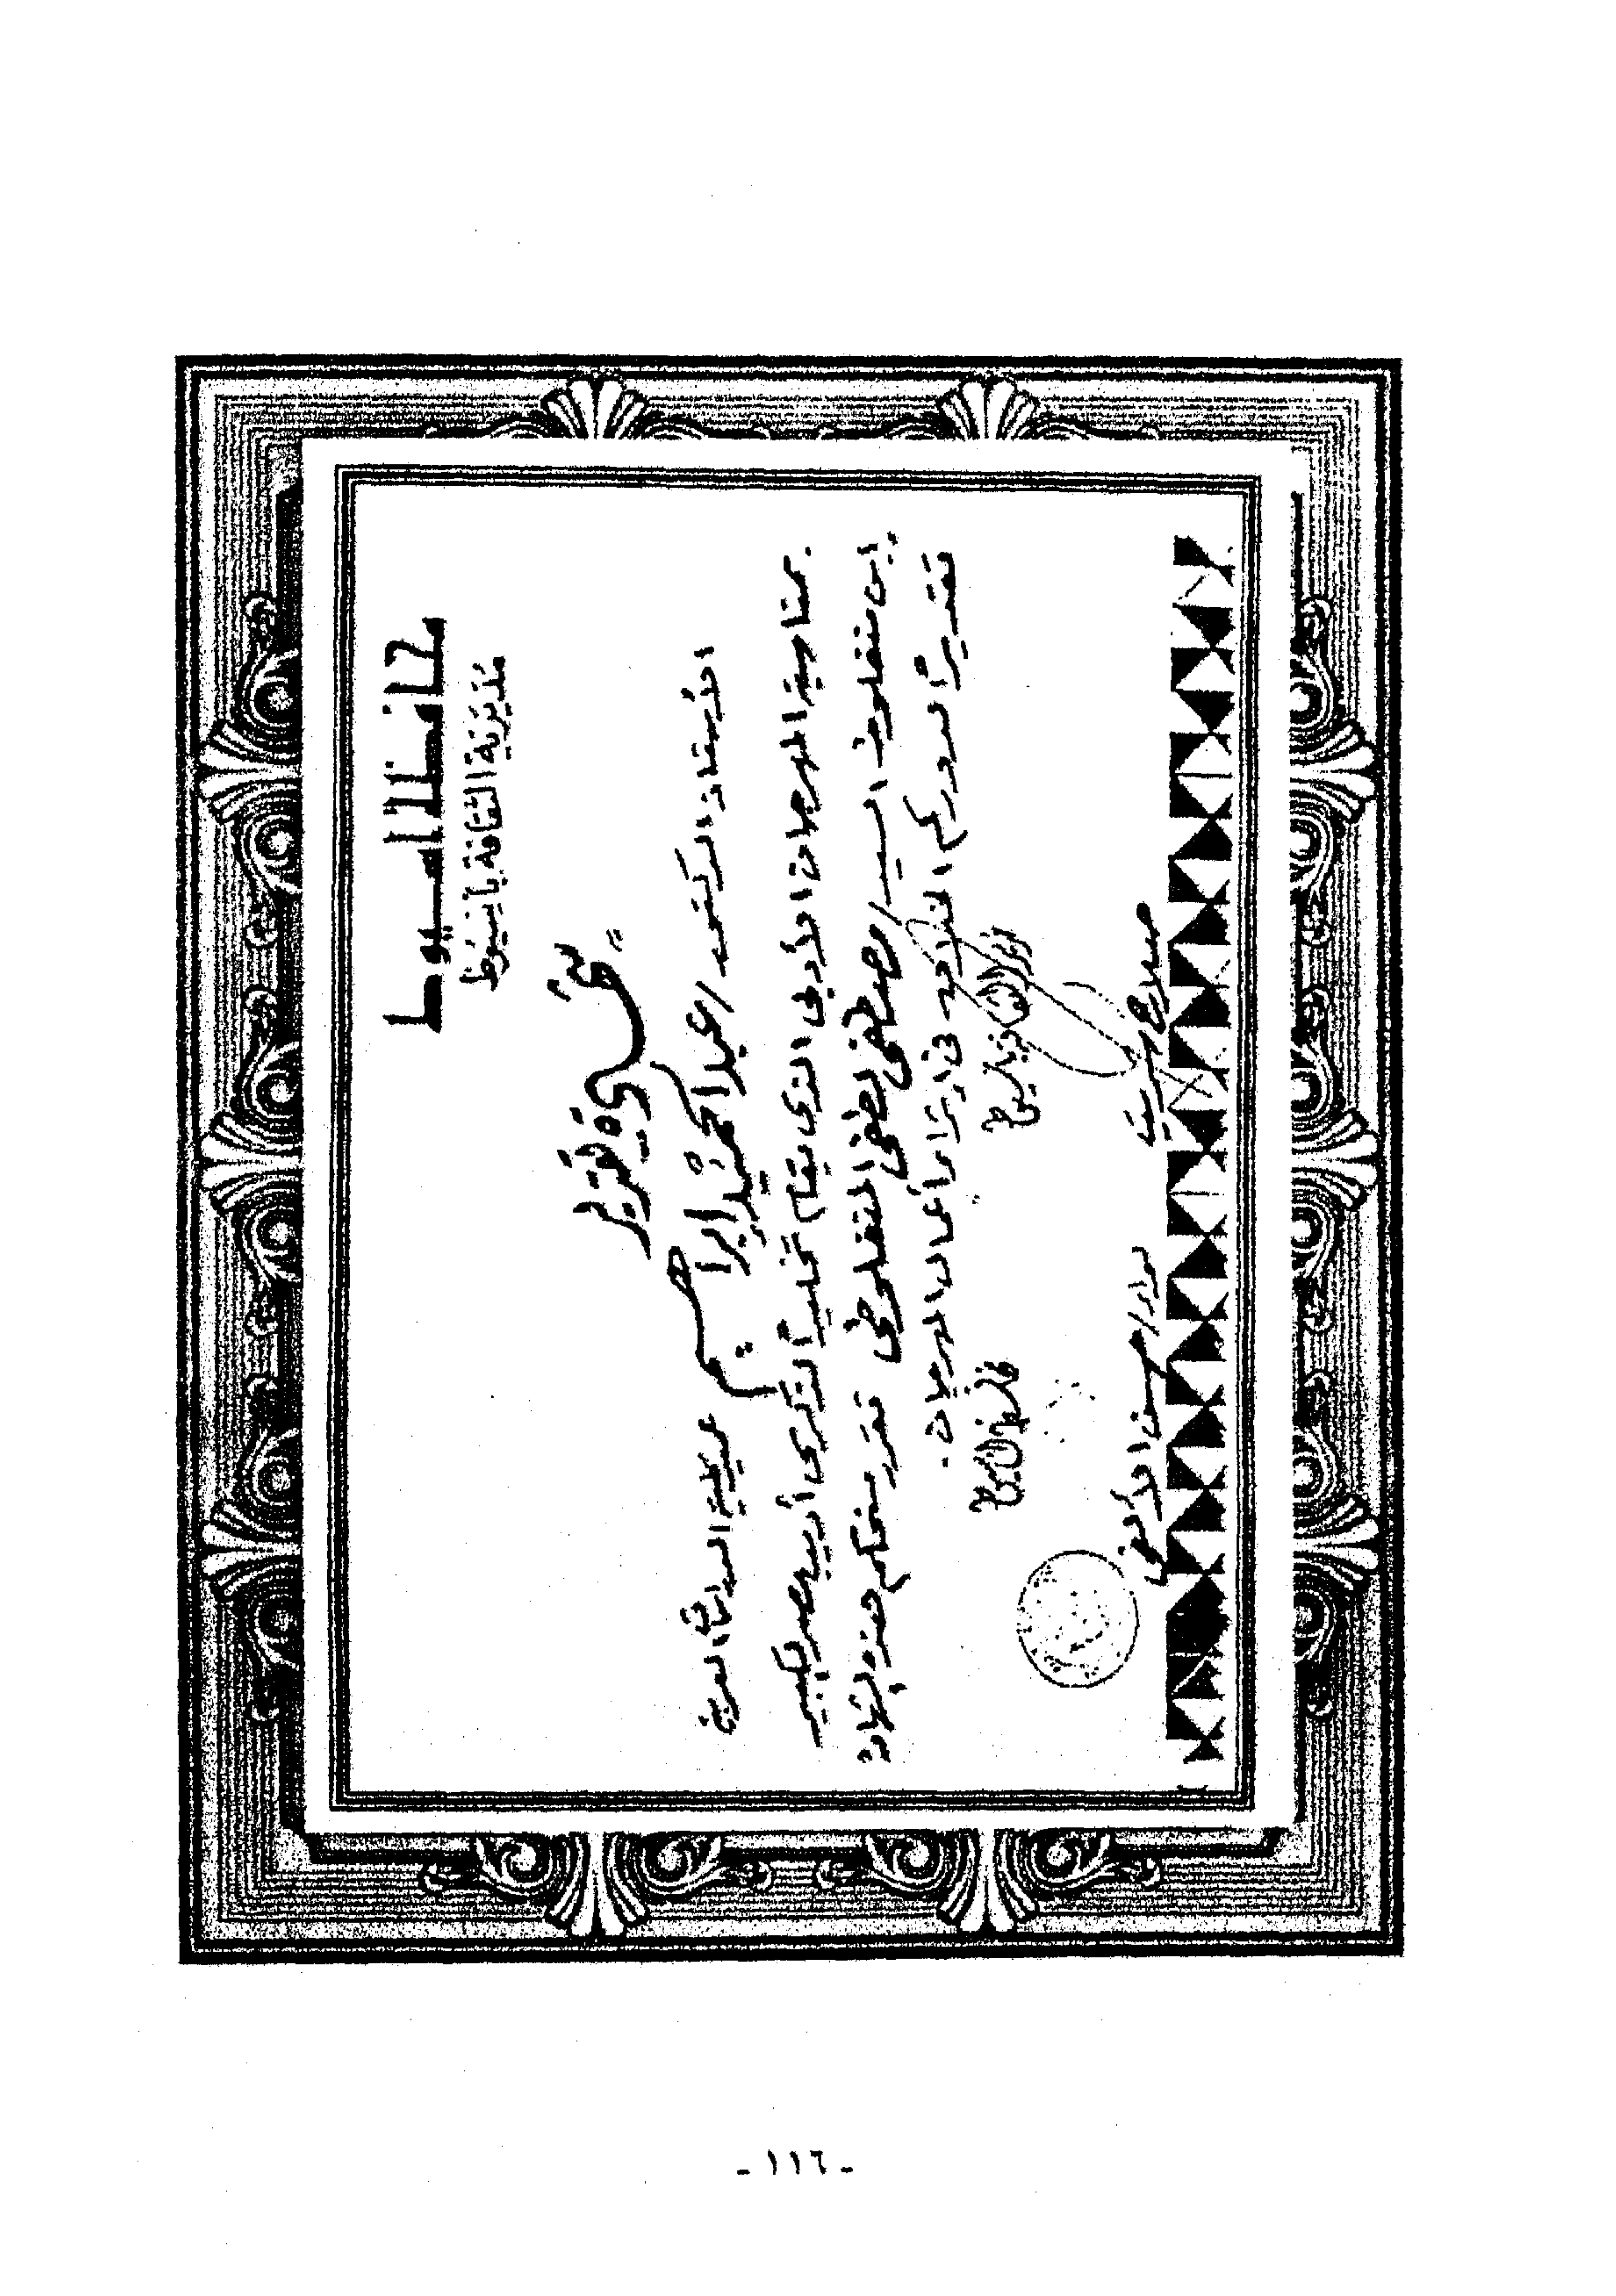 محافظة أسيوط
مديرية الثقافة بأسيوط
شهادة تقدير
الأستاذ الدكتور / عبد الحميد إبراهيم عميد كلية الدراسات العربية
بمناسبة المهرجان الأدبي الذي يقام تخليداً لذكرى أديب مصر الكبير
ابن منفلوط السيد / مصطفى لطفي المنفلوطي تقرر منحكم هذه الشهادة
تقديراً لدوركم الخلاق في إثراء أعمال المهرجان.
مدير الثقافة بأسيوط
محافظ أسيوط
صلاح شريت
لواء / حسن الألفي
- ١١٦ -